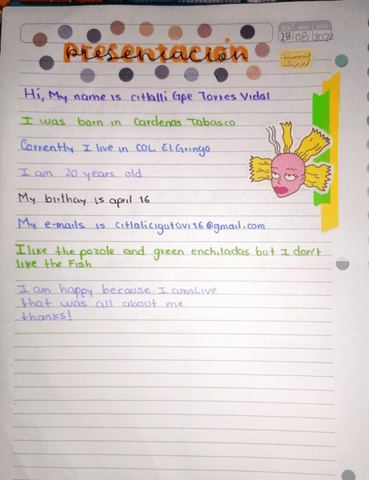 29 08 2022
presentación
Hi, My name is citlalli Gpe Torres Vidal
I was born in Cardenas Tabasco
Corrently I live in COL. El Gringo
I am 20 years old
My birthay is april 16
My e-mails is citlalicigutovi16@gmail.com
I like the pozole and green enchiladas but I don't
like the Fish
I am happy because I amalive
that was all about me
thanks!